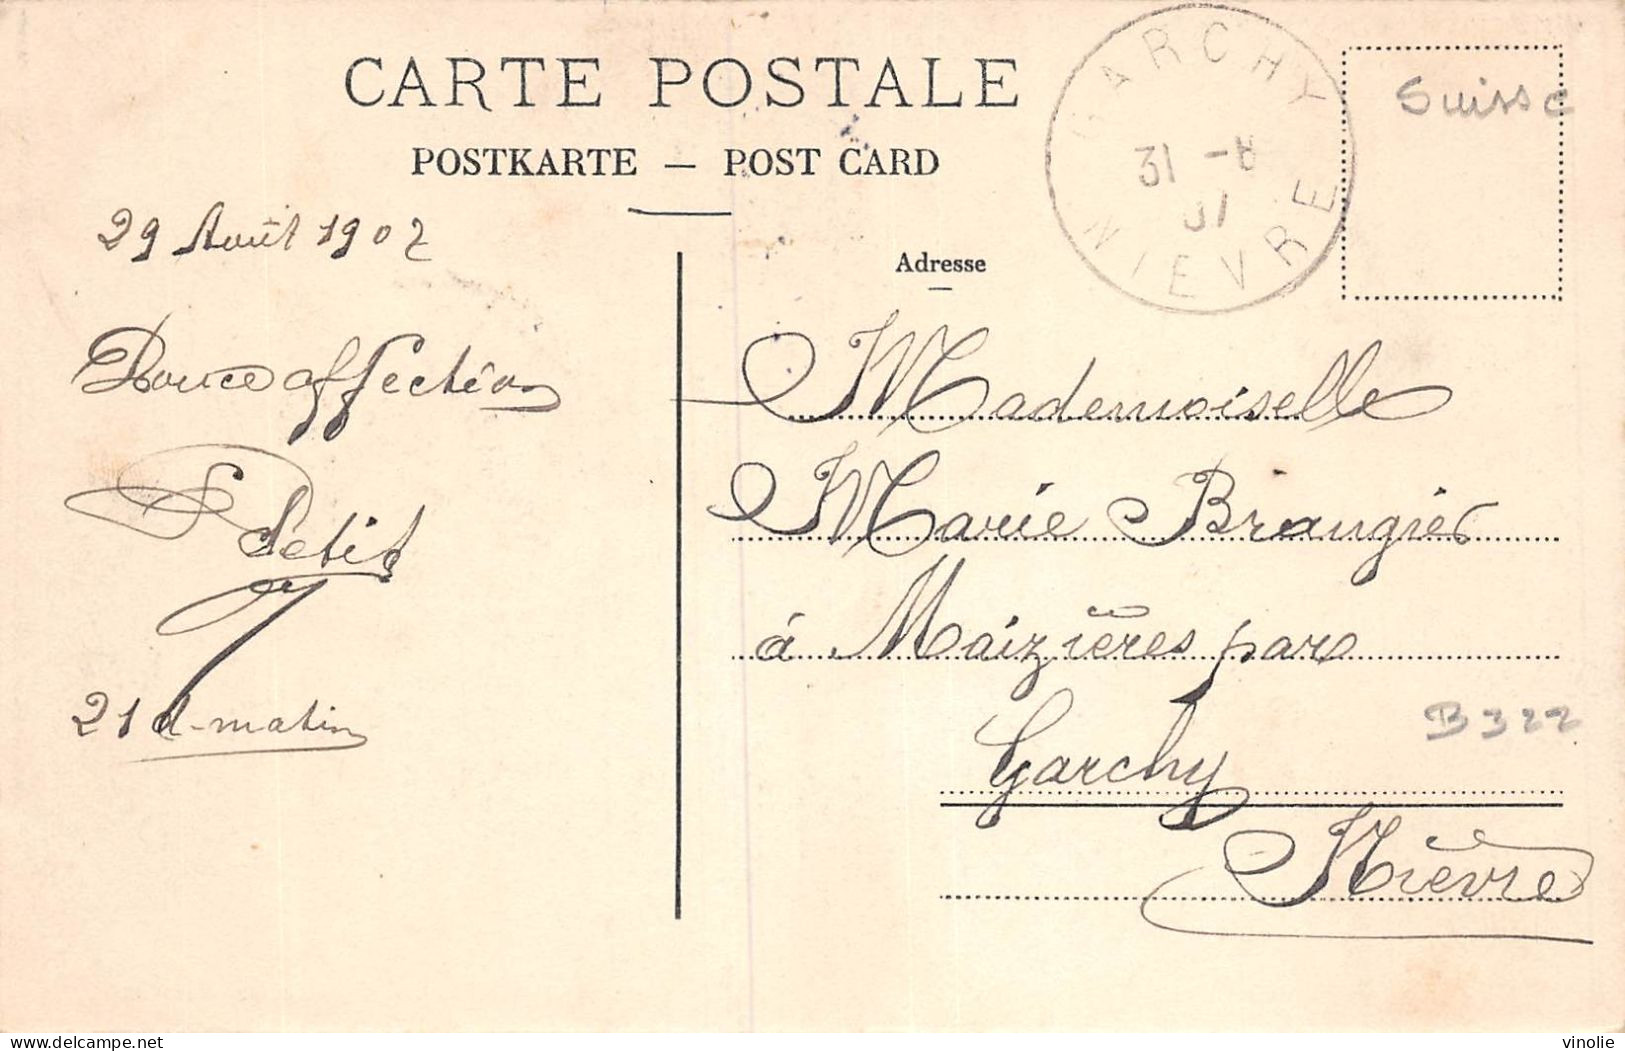 CARTE POSTALE
POSTKARTE — POST CARD
GARCHY
31 -8
07
NIEVRE
Suisse
29 Août 1907
Adresse
Douce affection
Petit
21 d-matin
Mademoiselle
Marie Brangier
à Maizières par
Garchy
Nièvre
B322
vinolie